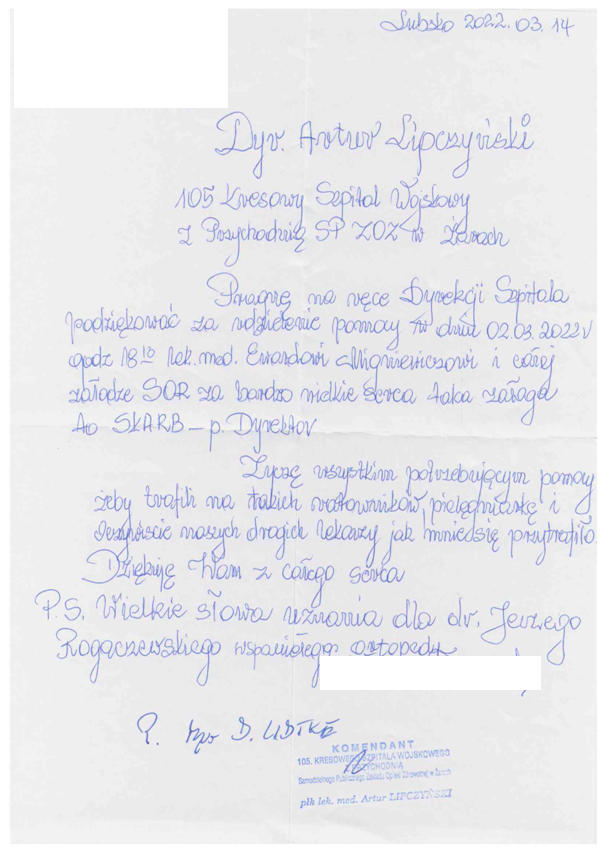 Lubsko 2022.03.14
Dyr. Artur Lipczyński
105 Kresowy Szpital Wojskowy
z Przychodnią SP ZOZ w Żarach
Pragnę na ręce Dyrekcji Szpitala
podziękować za udzielenie pomocy w dniu 02.03.2022r
godz 18¹⁰ lek. med. Migniewiczowi i całej
załodze SOR za bardzo wielkie serca taka załoga
to SKARB – p. Dyrektor
Życzę wszystkim potrzebującym pomocy
żeby trafili na takich ratowników, pielęgniarkę i
oczywiście naszych drogich lekarzy jak mniesię przytrafiło.
Dziękuję Wam z całego serca
P.S. Wielkie słowa uznania dla dr. Jerzego
Rogaczewskiego wspaniałego ortopedy
P. D. LIDTKE
KOMENDANT
105. KRESOWEGO SZPITALA WOJSKOWEGO
Z PRZYCHODNIĄ
Samodzielnego Publicznego Zakładu Opieki Zdrowotnej w Żarach
płk lek. med. Artur LIPCZYŃSKI